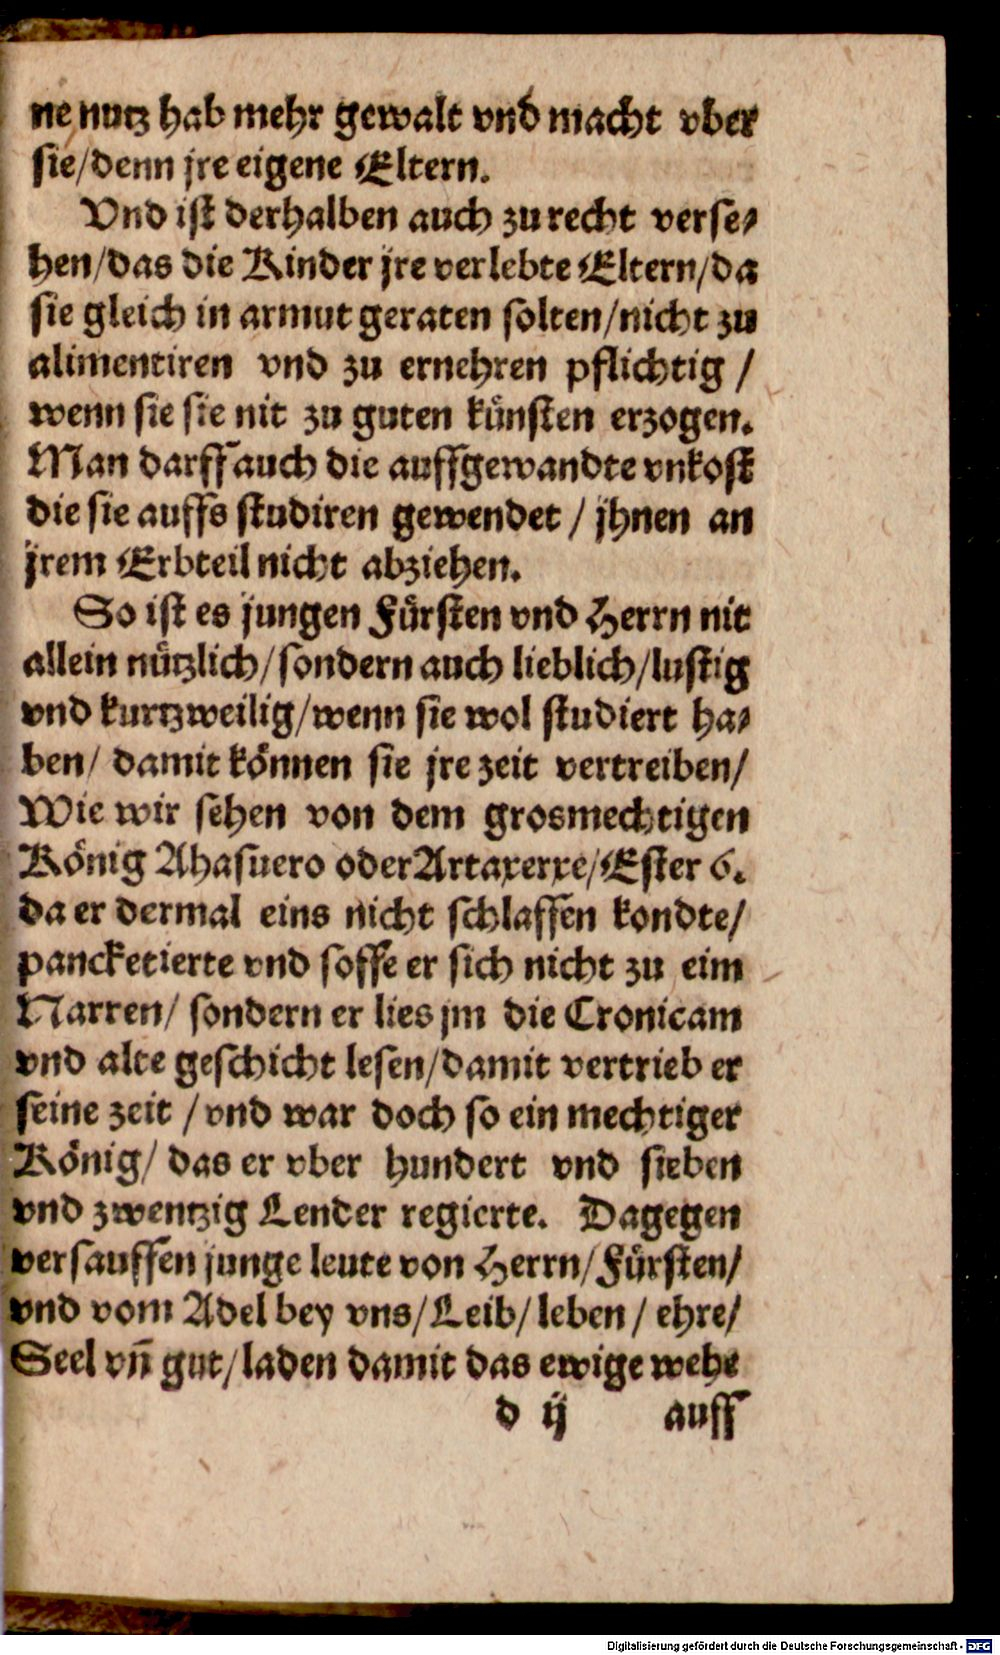 ne nutz hab mehr gewalt vnd macht vber
sie/denn jre eigene Eltern.
Vnd ist derhalben auch zu recht verse⸗
hen/das die Kinder jre verlebte Eltern/da
sie gleich in armut geraten solten/nicht zu
alimentiren vnd zu ernehren pflichtig /
wenn sie sie nit zu guten kuͤnsten erzogen.
Man darff auch die auffgewandte vnkost
die sie auffs studiren gewendet / jhnen an
jrem Erbteil nicht abziehen.
So ist es jungen Fuͤrsten vnd Herrn nit
allein nuͤtzlich/sondern auch lieblich/lustig
vnd kurtzweilig/wenn sie wol studiert ha⸗
ben/ damit koͤnnen sie jre zeit vertreiben/
Wie wir sehen von dem grosmechtigen
Koͤnig Ahasuero oder Artaxerxe/Ester 6.
da er dermal eins nicht schlaffen kondte/
pancketierte vnd soffe er sich nicht zu eim
Narren/ sondern er lies jm die Cronicam
vnd alte geschicht lesen/damit vertrieb er
seine zeit /vnd war doch so ein mechtiger
Koͤnig/ das er vber hundert vnd sieben
vnd zwentzig Lender regierte. Dagegen
versauffen junge leute von Herrn/Fuͤrsten/
vnd vom Adel bey vns/Leib/leben / ehre/
Seel vn̄ gut/laden damit das ewige wehe
d ij auff
Digitalisierung gefördert durch die Deutsche Forschungsgemeinschaft - DFG